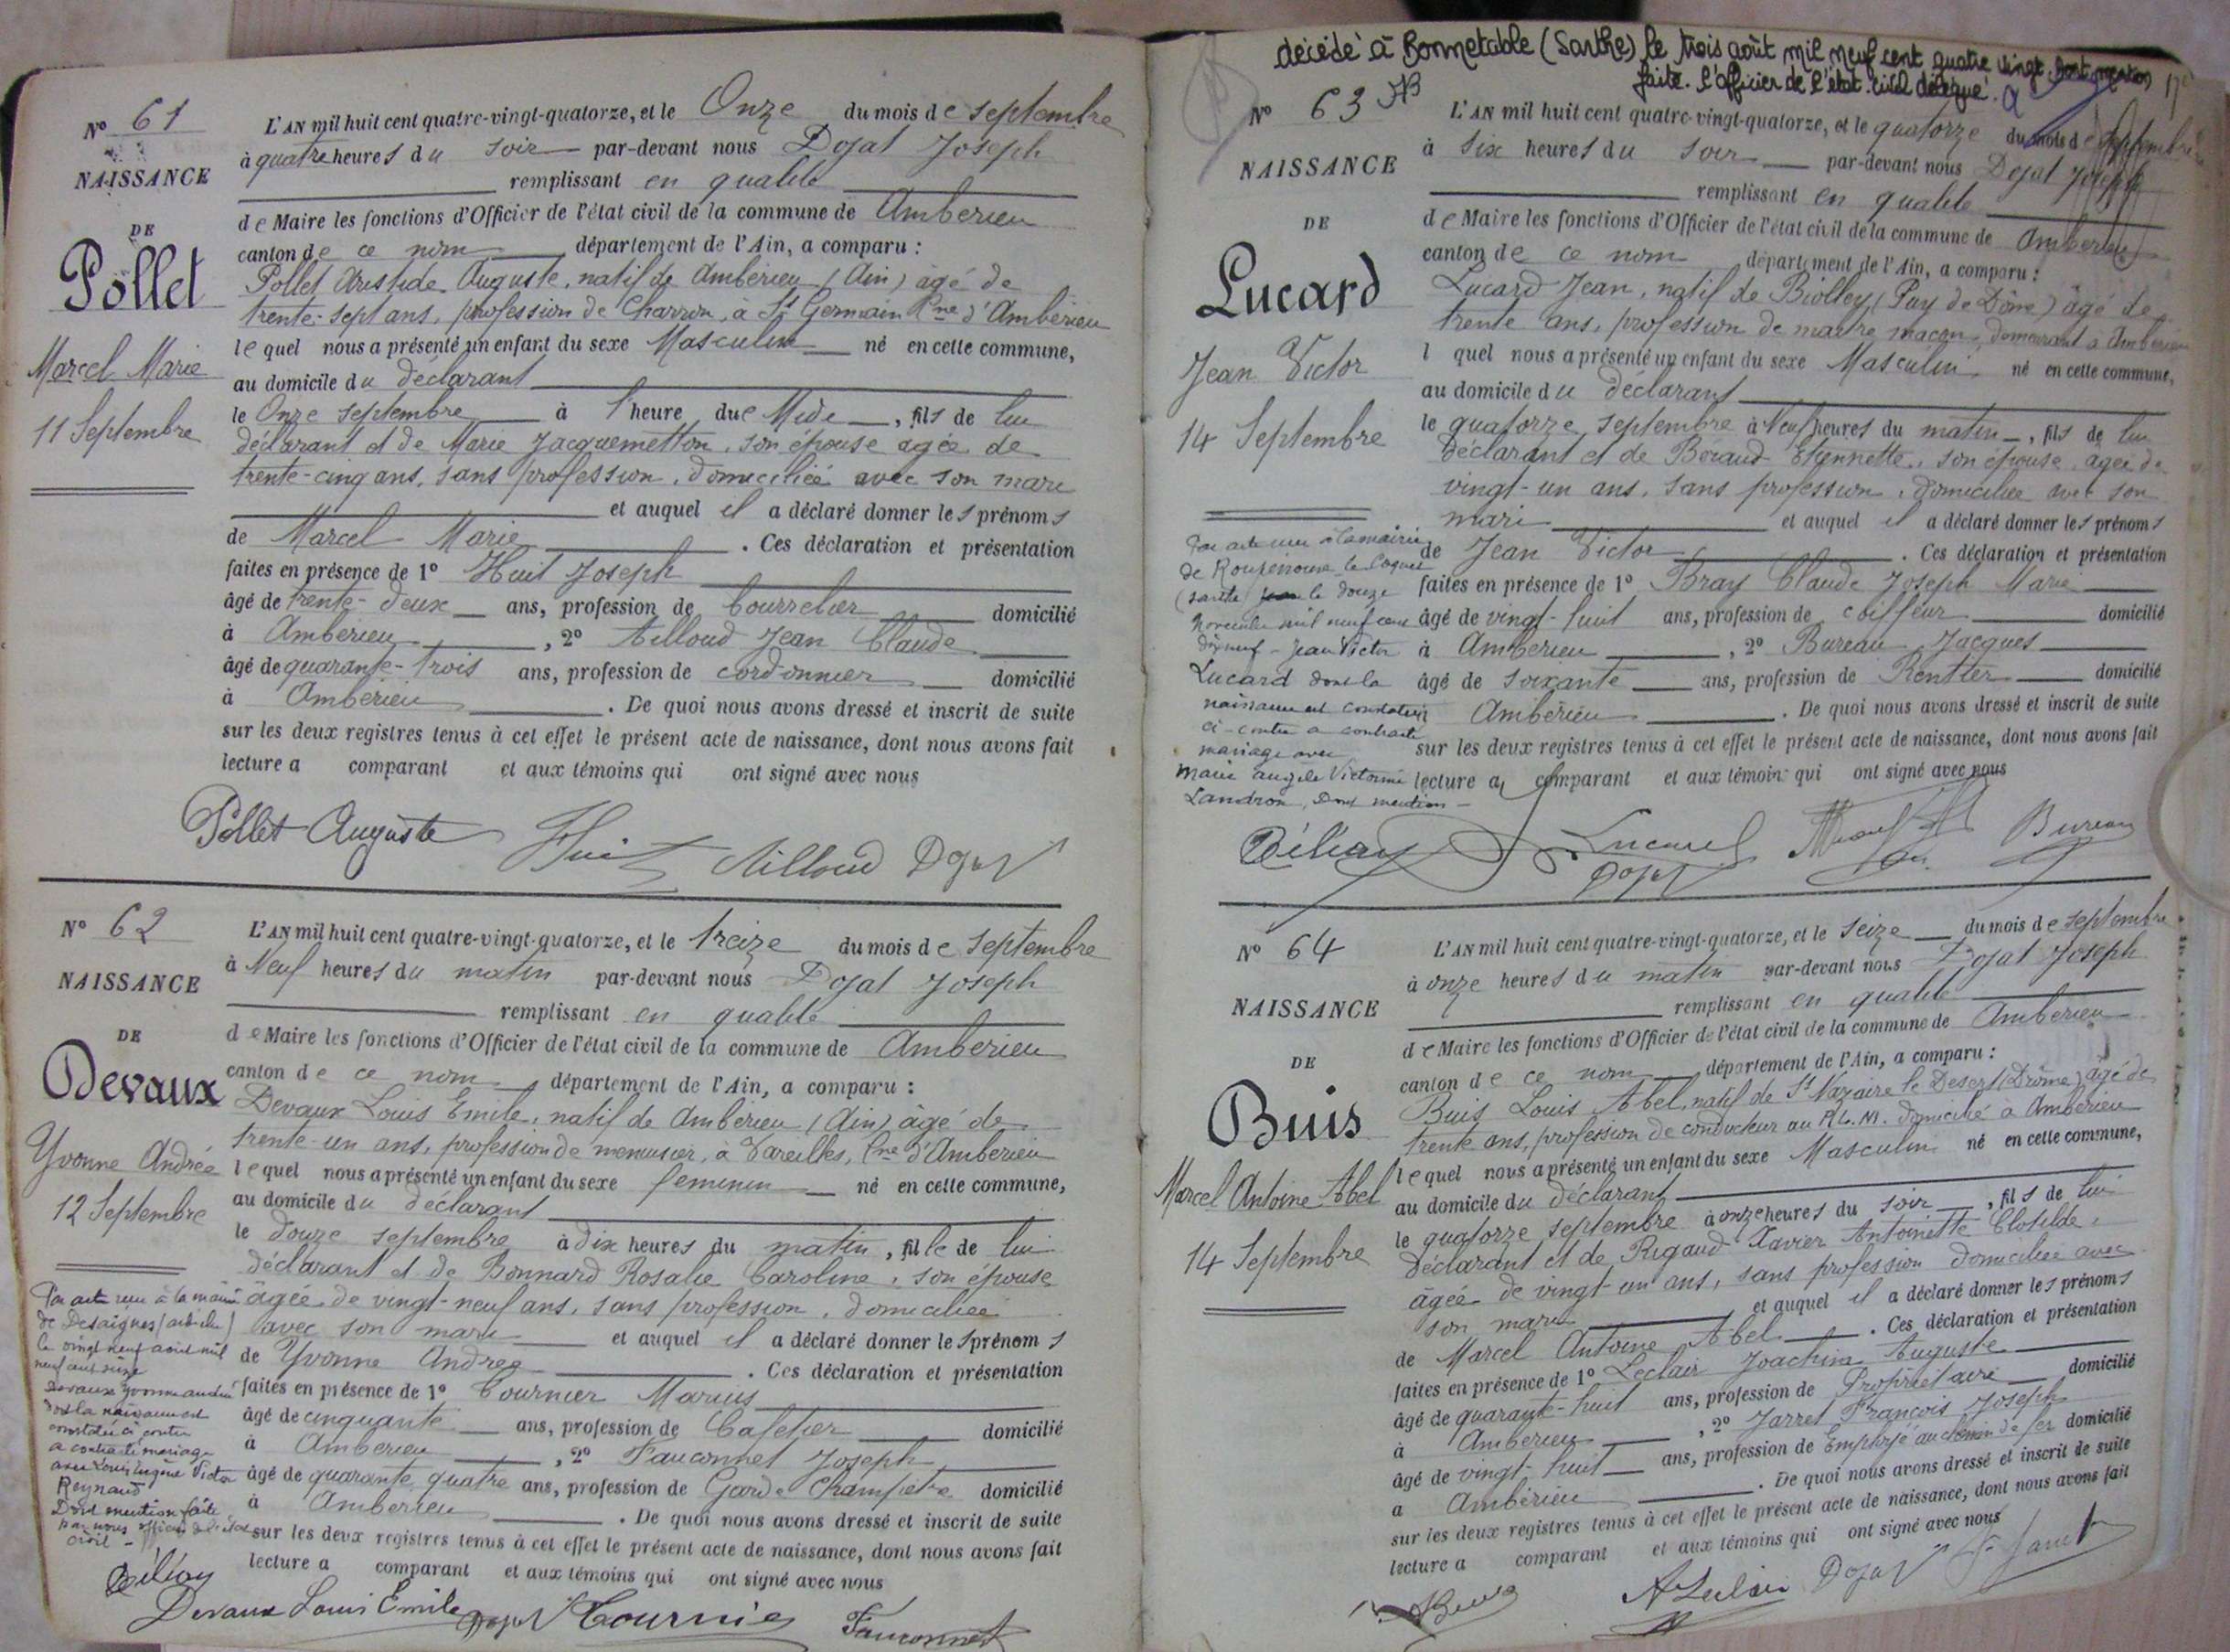 N° 61
NAISSANCE
DE
Pollet
Marcel Marie
11 Septembre
L'AN mil huit cent quatre-vingt-quatorze, et le Onze du mois de septembre
à quatre heures du soir par-devant nous Dojat Joseph
remplissant en qualité
de Maire les fonctions d'Officier de l'état civil de la commune de Ambérieu
canton de ce nom département de l'Ain, a comparu :
Pollet Aristide Auguste, natif de Ambérieu (Ain) âgé de
trente-sept ans, profession de Charron, à St Germain Cne d'Ambérieu
lequel nous a présenté un enfant du sexe Masculin né en cette commune,
au domicile du déclarant
le Onze septembre à l'heure due Midi, fils de lui
déclarant et de Marie Jacquemetton, son épouse âgée de
trente-cinq ans, sans profession, domiciliée avec son mari
et auquel il a déclaré donner les prénoms
de Marcel Marie. Ces déclaration et présentation
faites en présence de 1° Huit Joseph
âgé de trente-deux ans, profession de bourrelier domicilié
à Ambérieu, 2° Tilloud Jean Claude
âgé de quarante-trois ans, profession de cordonnier domicilié
à Ambérieu. De quoi nous avons dressé et inscrit de suite
sur les deux registres tenus à cet effet le présent acte de naissance, dont nous avons fait
lecture a comparant et aux témoins qui ont signé avec nous
Pollet Auguste Huit Tilloud Dojat
N° 62
NAISSANCE
DE
Devaux
Yvonne Andrée
12 Septembre
L'AN mil huit cent quatre-vingt-quatorze, et le treize du mois de septembre
à Neuf heures du matin par-devant nous Dojat Joseph
remplissant en qualité
de Maire les fonctions d'Officier de l'état civil de la commune de Ambérieu
canton de ce nom, département de l'Ain, a comparu :
Devaux Louis Emile, natif de Ambérieu (Ain) âgé de
trente-un ans, profession de menuisier, à Vareilles, Cne d'Ambérieu
lequel nous a présenté un enfant du sexe féminin né en cette commune,
au domicile du déclarant
le douze septembre à dix heures du matin, fille de lui
déclarant et de Bonnard Rosalie Caroline, son épouse
âgée de vingt-neuf ans, sans profession, domiciliée
avec son mari et auquel il a déclaré donner les prénoms
de Yvonne Andrée. Ces déclaration et présentation
faites en présence de 1° Cournier Marius
âgé de cinquante ans, profession de Cafetier domicilié
à Ambérieu, 2° Fauconnet Joseph
âgé de quarante quatre ans, profession de Garde Champêtre domicilié
à Ambérieu. De quoi nous avons dressé et inscrit de suite
sur les deux registres tenus à cet effet le présent acte de naissance, dont nous avons fait
lecture a comparant et aux témoins qui ont signé avec nous
Par acte reçu à la mairie
de Desaignes (Ardèche)
le vingt neuf août mil
neuf cent
Devaux Yvonne Andrée
dont la naissance est
constatée ci contre
a contracté mariage
avec Louis Eugène Victor
Reynaud
Dont mention faite
par nous officier de l'état
civil -
Devaux Louis Emile Dojat Cournier Fauconnet
décédé à Bonnetable (Sarthe) le trois août mil neuf cent quatre vingt. Dont mention
faite. l'officier de l'état civil délégué.
N° 63
NAISSANCE
DE
Lucard
Jean Victor
14 Septembre
L'AN mil huit cent quatre-vingt-quatorze, et le quatorze du mois de septembre
à six heures du soir par-devant nous Dojat Joseph
remplissant en qualité
de Maire les fonctions d'Officier de l'état civil de la commune de Ambérieu
canton de ce nom département de l'Ain, a comparu :
Lucard Jean, natif de Biollet (Puy de Dôme) âgé de
trente ans, profession de maître maçon, demeurant à Ambérieu
l quel nous a présenté un enfant du sexe Masculin né en cette commune,
au domicile du déclarant
le quatorze septembre à Neuf heures du matin, fils de lui
déclarant et de Béraud Etiennette, son épouse âgée de
vingt-un ans, sans profession, domiciliée avec son
mari et auquel il a déclaré donner les prénoms
de Jean Victor. Ces déclaration et présentation
faites en présence de 1° Bray Claude Joseph Marie
âgé de vingt-huit ans, profession de coiffeur domicilié
à Ambérieu, 2° Bureau Jacques
âgé de soixante ans, profession de Rentier domicilié
Ambérieu. De quoi nous avons dressé et inscrit de suite
sur les deux registres tenus à cet effet le présent acte de naissance, dont nous avons fait
lecture a comparant et aux témoin qui ont signé avec nous
Par acte reçu à la mairie
de Rouperroux le Coquet
(Sarthe) le douze
novembre mil neuf cent
dix neuf - Jean Victor
Lucard dont la
naissance est constatée
ci-contre a contracté
mariage avec
Marie Angèle Victorine
Landron, Dont mention -
Lucard Bureau
Dojat
N° 64
NAISSANCE
DE
Buis
Marcel Antoine Abel
14 Septembre
L'AN mil huit cent quatre-vingt-quatorze, et le seize du mois de septembre
à onze heures du matin par-devant nous Dojat Joseph
remplissant en qualité
de Maire les fonctions d'Officier de l'état civil de la commune de Ambérieu
canton de ce nom département de l'Ain, a comparu :
Buis Louis Abel, natif de St Nazaire le Désert (Drôme) âgé de
trente ans, profession de conducteur au P.L.M. domicilié à Ambérieu
lequel nous a présenté un enfant du sexe Masculin né en cette commune,
au domicile du déclarant
le quatorze septembre à onze heures du soir, fils de lui
déclarant et de Rigaud Xavier Antoinette Clotilde,
âgée de vingt un ans, sans profession domiciliée avec
son mari et auquel il a déclaré donner les prénoms
de Marcel Antoine Abel. Ces déclaration et présentation
faites en présence de 1° Leclair Joachim Auguste
âgé de quarante-huit ans, profession de Propriétaire domicilié
à Ambérieu, 2° Jarret François Joseph
âgé de vingt-huit ans, profession de Employé au chemin de fer domicilié
a Ambérieu. De quoi nous avons dressé et inscrit de suite
sur les deux registres tenus à cet effet le présent acte de naissance, dont nous avons fait
lecture a comparant et aux témoins qui ont signé avec nous
A Leclair Dojat